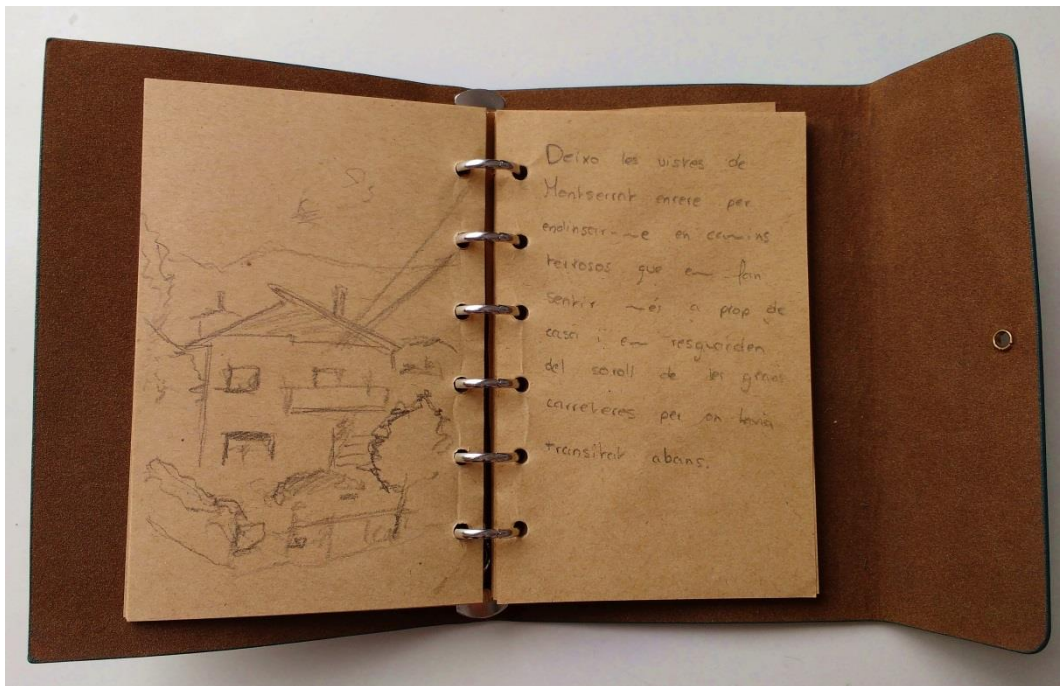 Deixo les vistes de
Montserrat enrere per
endinsar-me en camins
terrosos que em fan
sentir més a prop de
casa i em resguarden
del soroll de les grans
carreteres per on havia
transitat abans.